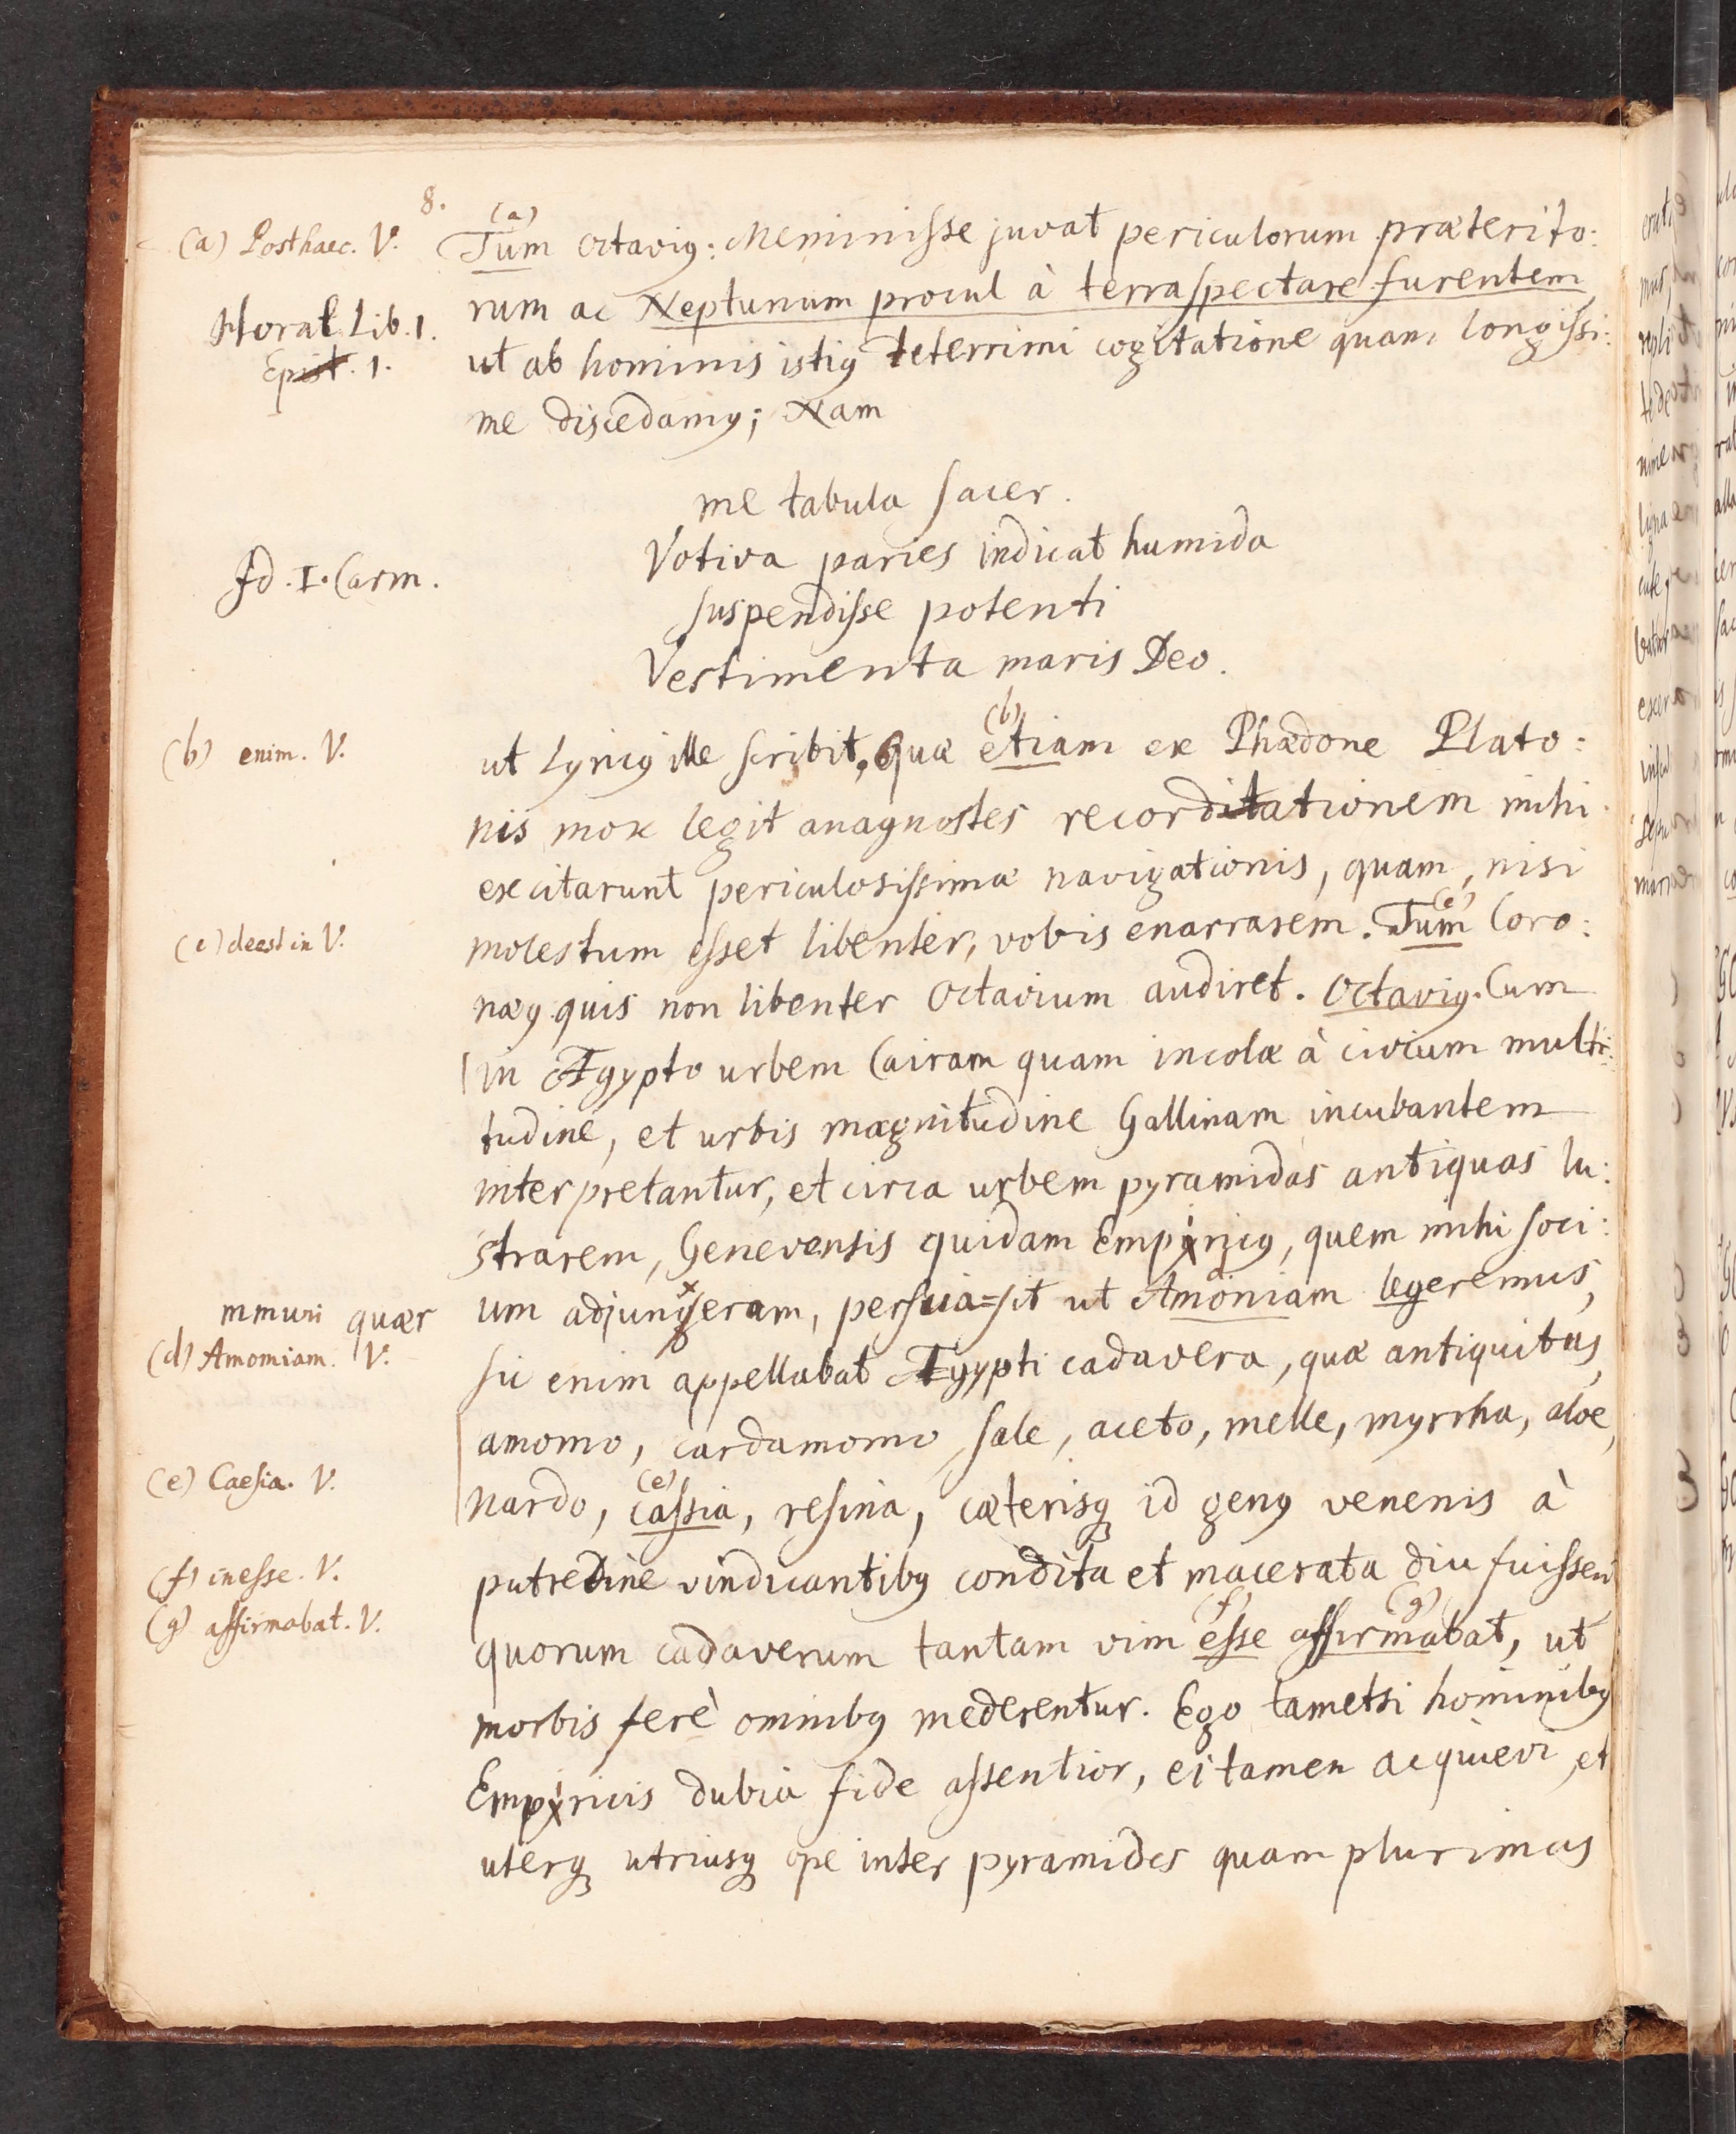 8.
(a) Posthaec. V.
(a)
Tum Octavi9: Meminisse juvat periculorum præterito:
rum ac Neptunum procul à terra spectare furentem
Horat Lib. 1.
Epist. 1.
ut ab hominis isti9 teterrimi cogitatione quam longissi:
me discedam9; Nam
me tabula sacer.
Votiva paries indicat humida
Id. I. Carm.
suspendisse potenti
Vestimenta maris Deo.
(b)
(b) enim. V.
ut Lyric9 ille scribit, quæ etiam ex Phædone Plato:
nis mox legit anagnostes recorditationem mihi
excitarunt periculosissimæ navigationis, quam, nisi
(c)
(c) deest in V.
molestum esset libenter, vobis enarrarem. Tum Coro:
næ9 quis non libenter Octavium audiret. Octavi9. Cum
in Ægypto urbem Cairam quam incolæ à civium multi:
tudine, et urbis magnitudine Gallinam incubantem
interpretantur, et circa urbem pyramidas antiquas lu:
strarem, Genevensis quidam Empiric9, quem mihi soci:
um adjunxeram, persua=sit ut Amoniam legeremus,
mmuri quær
(d) Amomiam. V.
sic enim appellabat Ægypti cadavera, quæ antiquitus,
amomo, cardamomo, sale, aceto, melle, myrrha, aloe,
(e)
(e) Caesia. V.
nardo, cassia, resina, cæterisq3 id gen9 venenis à
(f) inesse. V.
putredine vindicantib9 condita et macerata diu fuissent
(f) (g)
(g) affirmabat. V.
quorum cadaverum tantam vim esse affirmabat, ut
morbis ferè omnib9 mederentur. Ego tametsi hominib9
Empiricis dubia fide assentior, ei tamen acquievi, et
uterq3 utriusq3 ope inter pyramides quam plurimas